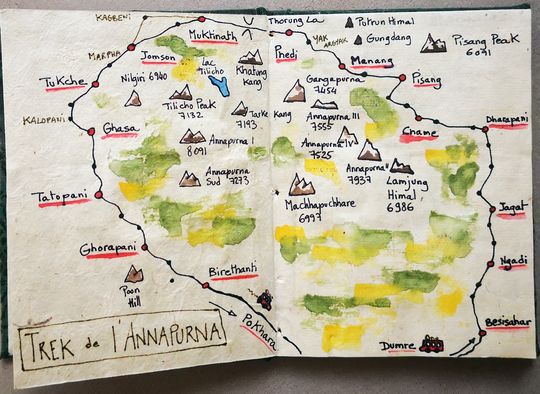 KAGBENI
MUKtiNATH
Thorung La
Purkun Himal
Gungdang
YAK
Pisang Peak
6091
MARPHA
Jomson
Lac
Tilicho
Khatung
Kang
Phedi
Manang
Nilgiri 6940
TUKche
Pisang
Gangapurna
7454
Tilicho Peak
7132
Tarke
7193
Kang
Annapurna III
7555
KALOPANi
Chame
Dharapani
Ghasa
Annapurna I
8091
Annapurna IV
7525
Annapurna II
7937
Lamjung
Himal
6986
Annapurna
Sud 7273
Tatopani
Machhapuchhare
6997
Jagat
Ghorapani
Ngadi
Birethanti
Poon
Hill
POKhara
Besisahar
Dumre
TREK de l'ANNAPURNA